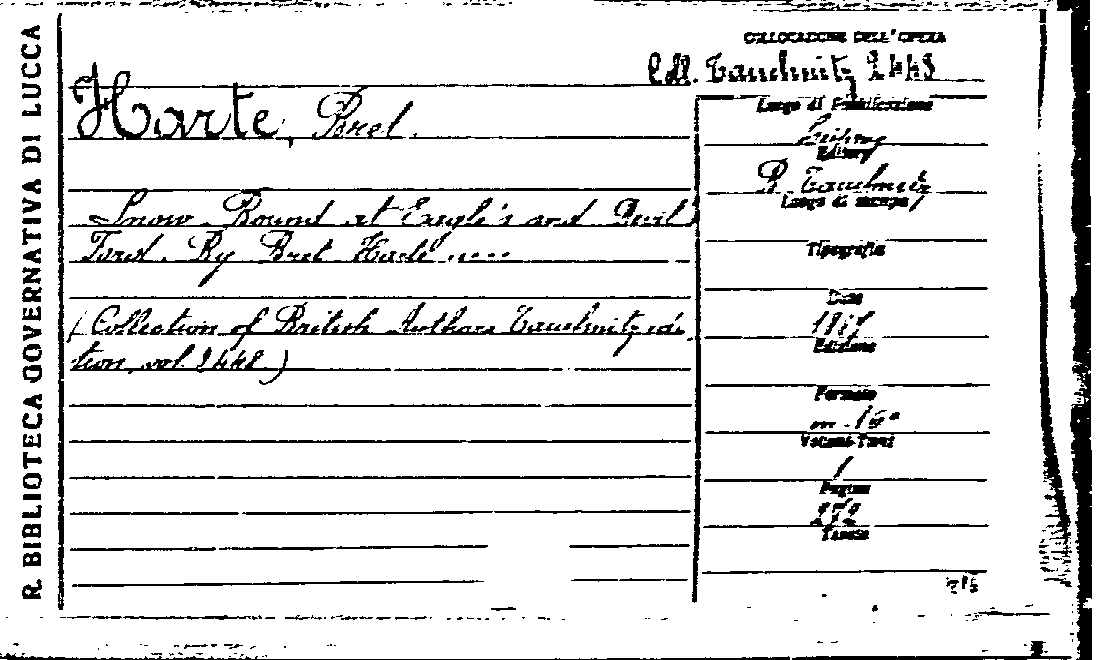 R. BIBLIOTECA GOVERNATIVA DI LUCCA
COLLOCAZIONE DELL'OPERA
Coll. Tauchnitz 2448
Harte, Bret.
Snow-Bound at Eagle's and Devil's
Ford. By Bret Harte ....
(Collection of British Authors Tauchnitz edi-
tion, vol. 2448.)
Luogo di Pubblicazione
Leipzig
Editore
B. Tauchnitz
Luogo di stampa
Tipografia
Data
1887
Edizione
Formato
in-16°
Volumi-Tomi
1
Pagine
272
Tavole